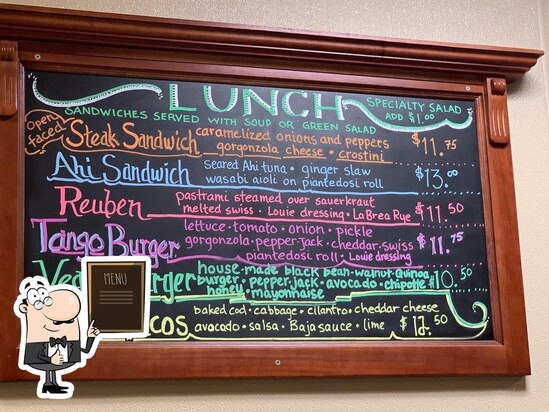 LUNCH
SPECIALTY SALAD
ADD $1.00
SANDWICHES SERVED WITH SOUP OR GREEN SALAD
Open faced
Steak Sandwich
caramelized onions and peppers
gorgonzola cheese • crostini
$11.75
Ahi Sandwich
Seared Ahi tuna • ginger slaw
wasabi aioli on piantedosi roll
$13.00
Reuben
pastrami steamed over sauerkraut
melted swiss • Louie dressing • La Brea Rye
$11.50
Tango Burger
lettuce • tomato • onion • pickle
gorgonzola • pepper-jack • cheddar • swiss
piantedosi roll • Louie dressing
$11.75
house-made black bean-walnut-Quinoa
burger • pepper jack • avocado • chipotle
honey • mayonnaise
$10.50
baked cod • cabbage • cilantro • cheddar cheese
avocado • salsa • Baja sauce • lime
$12.50
MENU